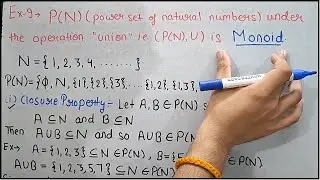 Ex-9→ P(N) (power set of natural numbers) under
the operation "union" ie (P(N), U) is Monoid.
N = {1, 2, 3, 4, .......}
P(N) = {ϕ, N, {1}, {2}, {3}, ... {1,2}, {1,3},
(i) Closure Property - Let A, B ∈ P(N) s
A ⊆ N and B ⊆ N
Then A∪B ⊆ N and so A∪B ∈ P(
Ex→ A = {1,2,3} ⊆ N ∈ P(N), B = {5
A∪B = {1,2,3,5,7} ⊆ N ∈ P(N)